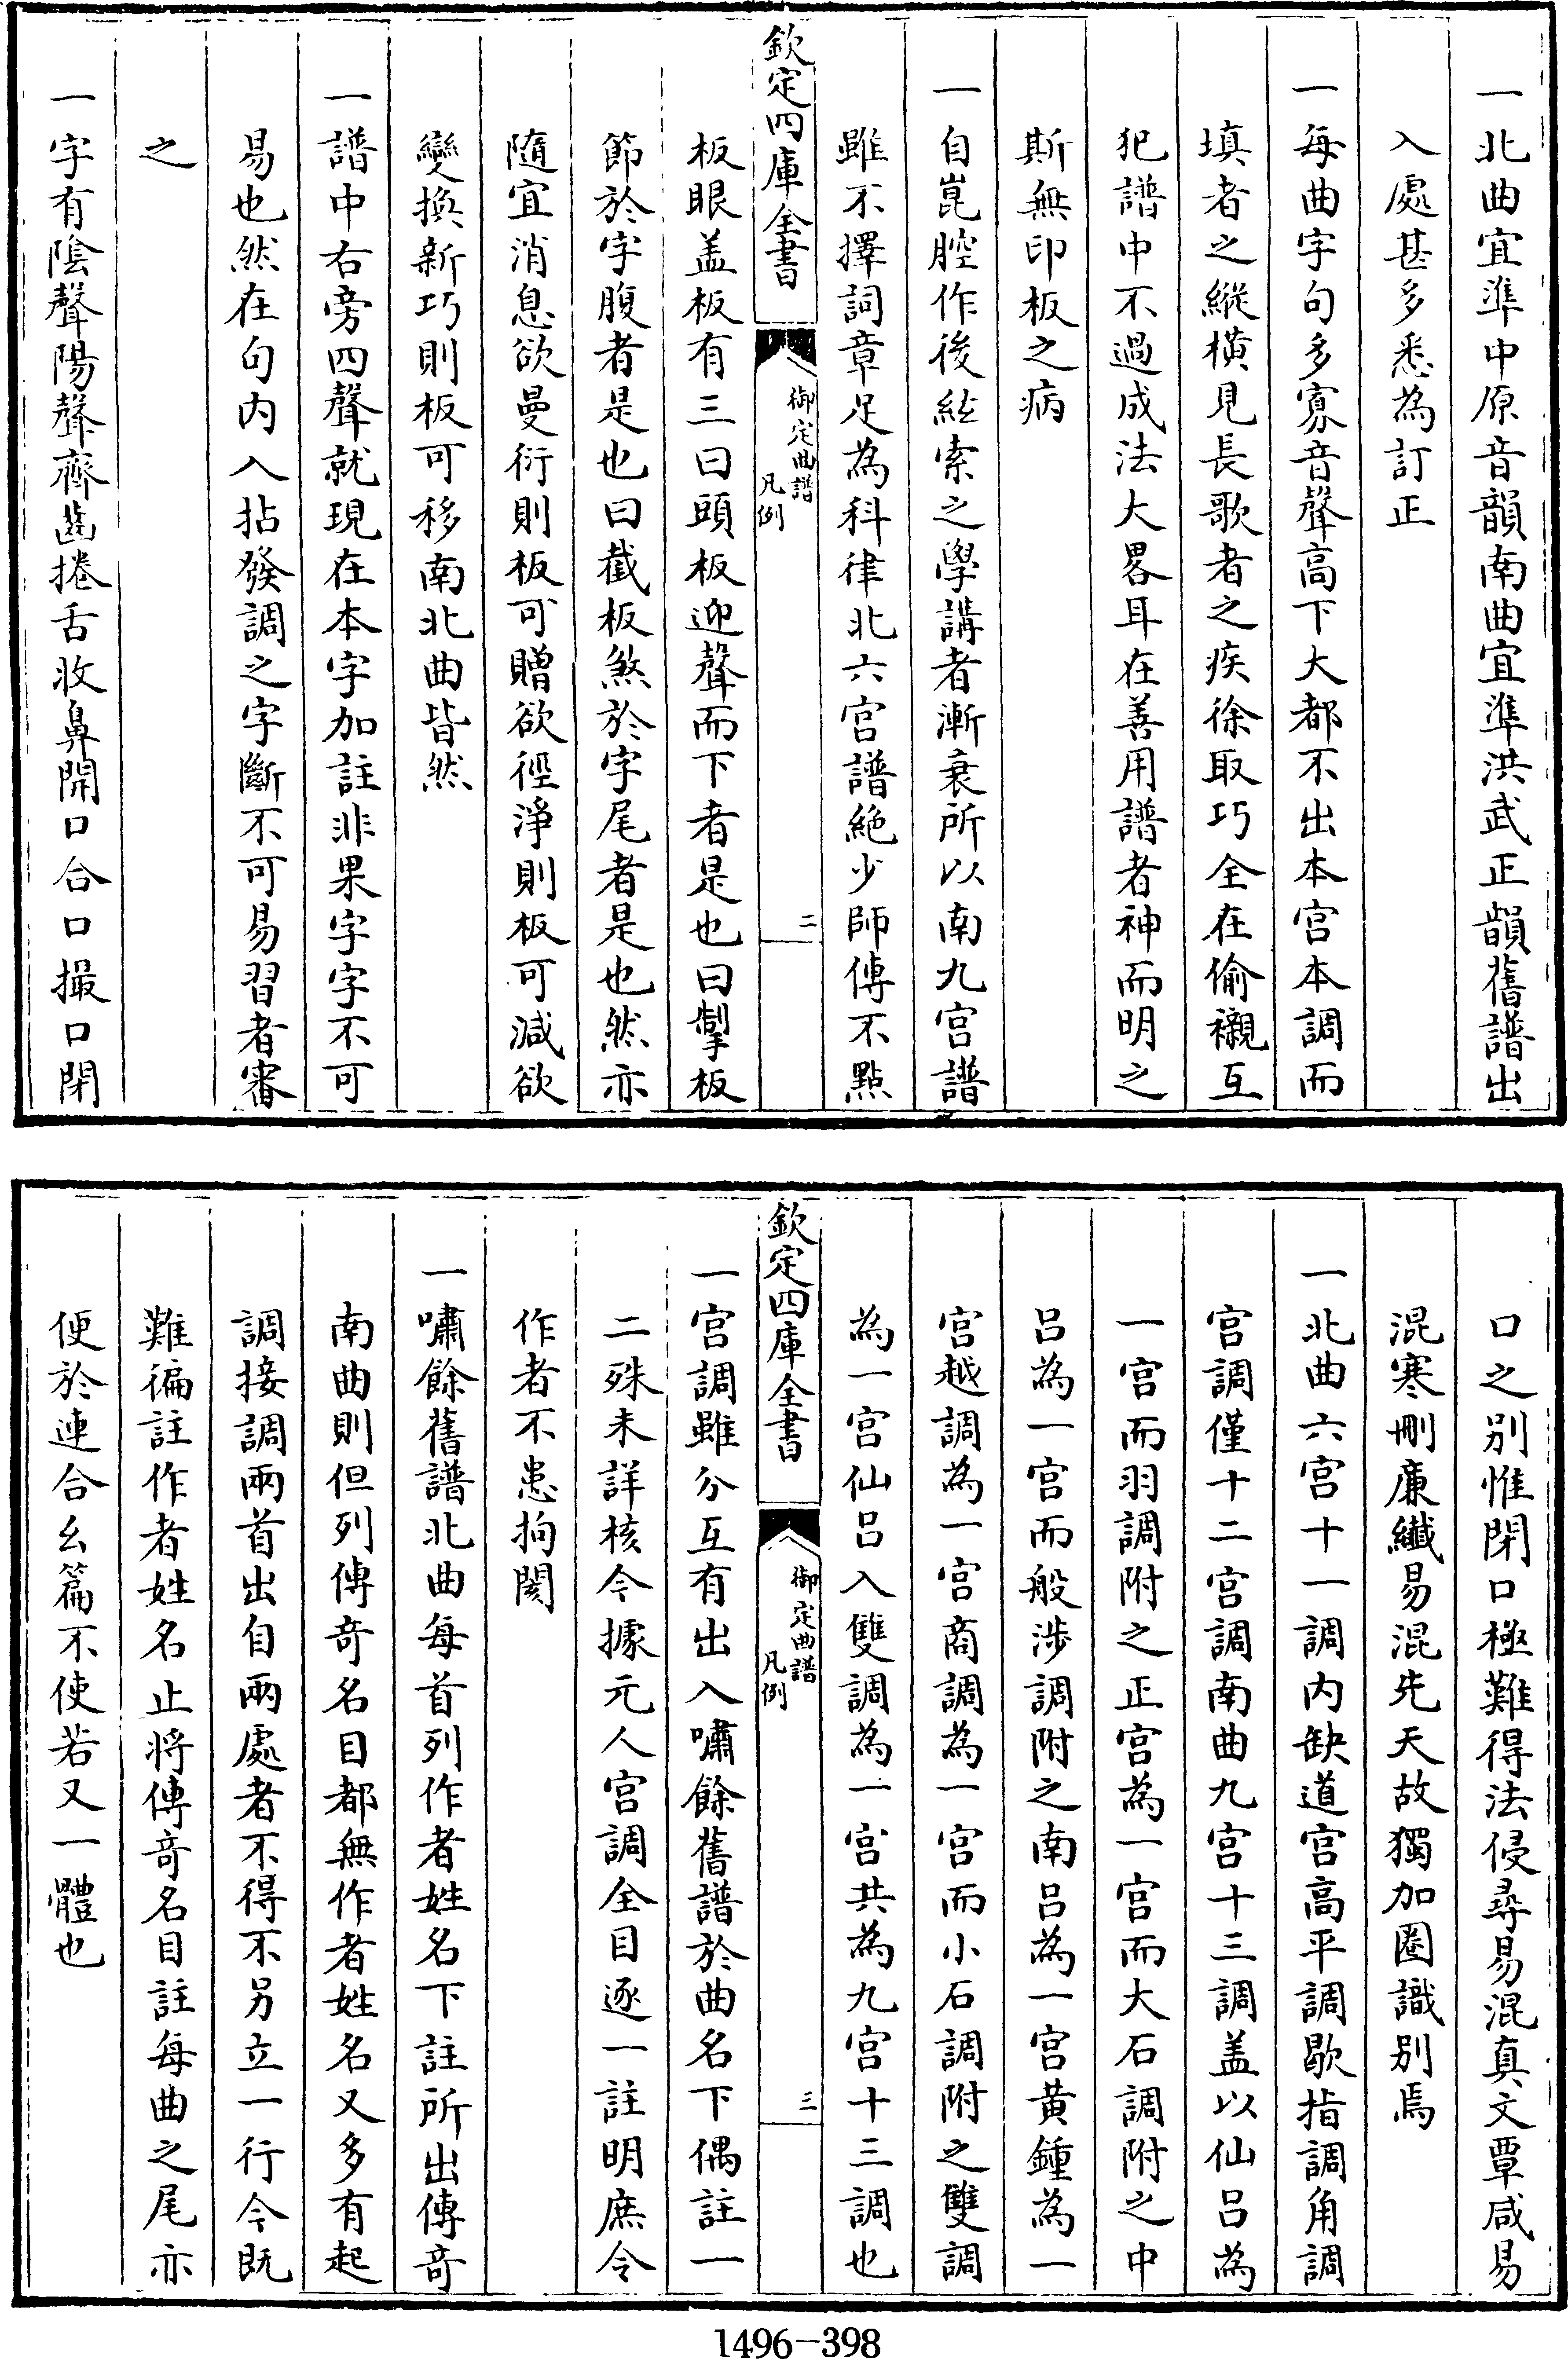 一北曲宜準中原音韻南曲宜準洪武正韻舊譜出
入處甚多悉為訂正
一每曲字句多寡音聲高下大都不出本宫本調而
填者之縱横見長歌者之疾徐取巧全在偷襯互
犯譜中不過成法大畧耳在善用譜者神而明之
斯無印板之病
一自崑腔作後絃索之學講者漸衰所以南九宫譜
雖不擇詞章足為科律北六宫譜絶少師傳不點
欽定四庫全書
御定曲譜
凡例
二
板眼盖板有三曰頭板迎聲而下者是也曰掣板
節於字腹者是也曰截板煞於字尾者是也然亦
隨宜消息欲曼衍則板可贈欲徑淨則板可減欲
變換新巧則板可移南北曲皆然
一譜中右旁四聲就現在本字加註非果字字不可
易也然在句内入拈發調之字斷不可易習者審
之
一字有陰聲陽聲齊齒捲舌收鼻開口合口撮口閉
口之别惟閉口極難得法侵尋易混真文覃咸易
混寒刪廉纎易混先天故獨加圏識别焉
一北曲六宫十一調内缺道宫高平調歇指調角調
宫調僅十二宫調南曲九宫十三調盖以仙呂為
一宫而羽調附之正宫為一宫而大石調附之中
呂為一宫而般涉調附之南呂為一宫黄鍾為一
宫越調為一宫商調為一宫而小石調附之雙調
為一宫仙呂入雙調為一宫共為九宫十三調也
欽定四庫全書
御定曲譜
凡例
三
一宫調雖分互有出入嘯餘舊譜於曲名下偶註一
二殊未詳核今據元人宫調全目逐一註明庶令
作者不患拘閡
一嘯餘舊譜北曲每首列作者姓名下註所出傳奇
南曲則但列傳奇名目都無作者姓名又多有起
調接調兩首出自兩處者不得不另立一行今既
難徧註作者姓名止將傳奇名目註每曲之尾亦
便於連合幺篇不使若又一體也
1496—398